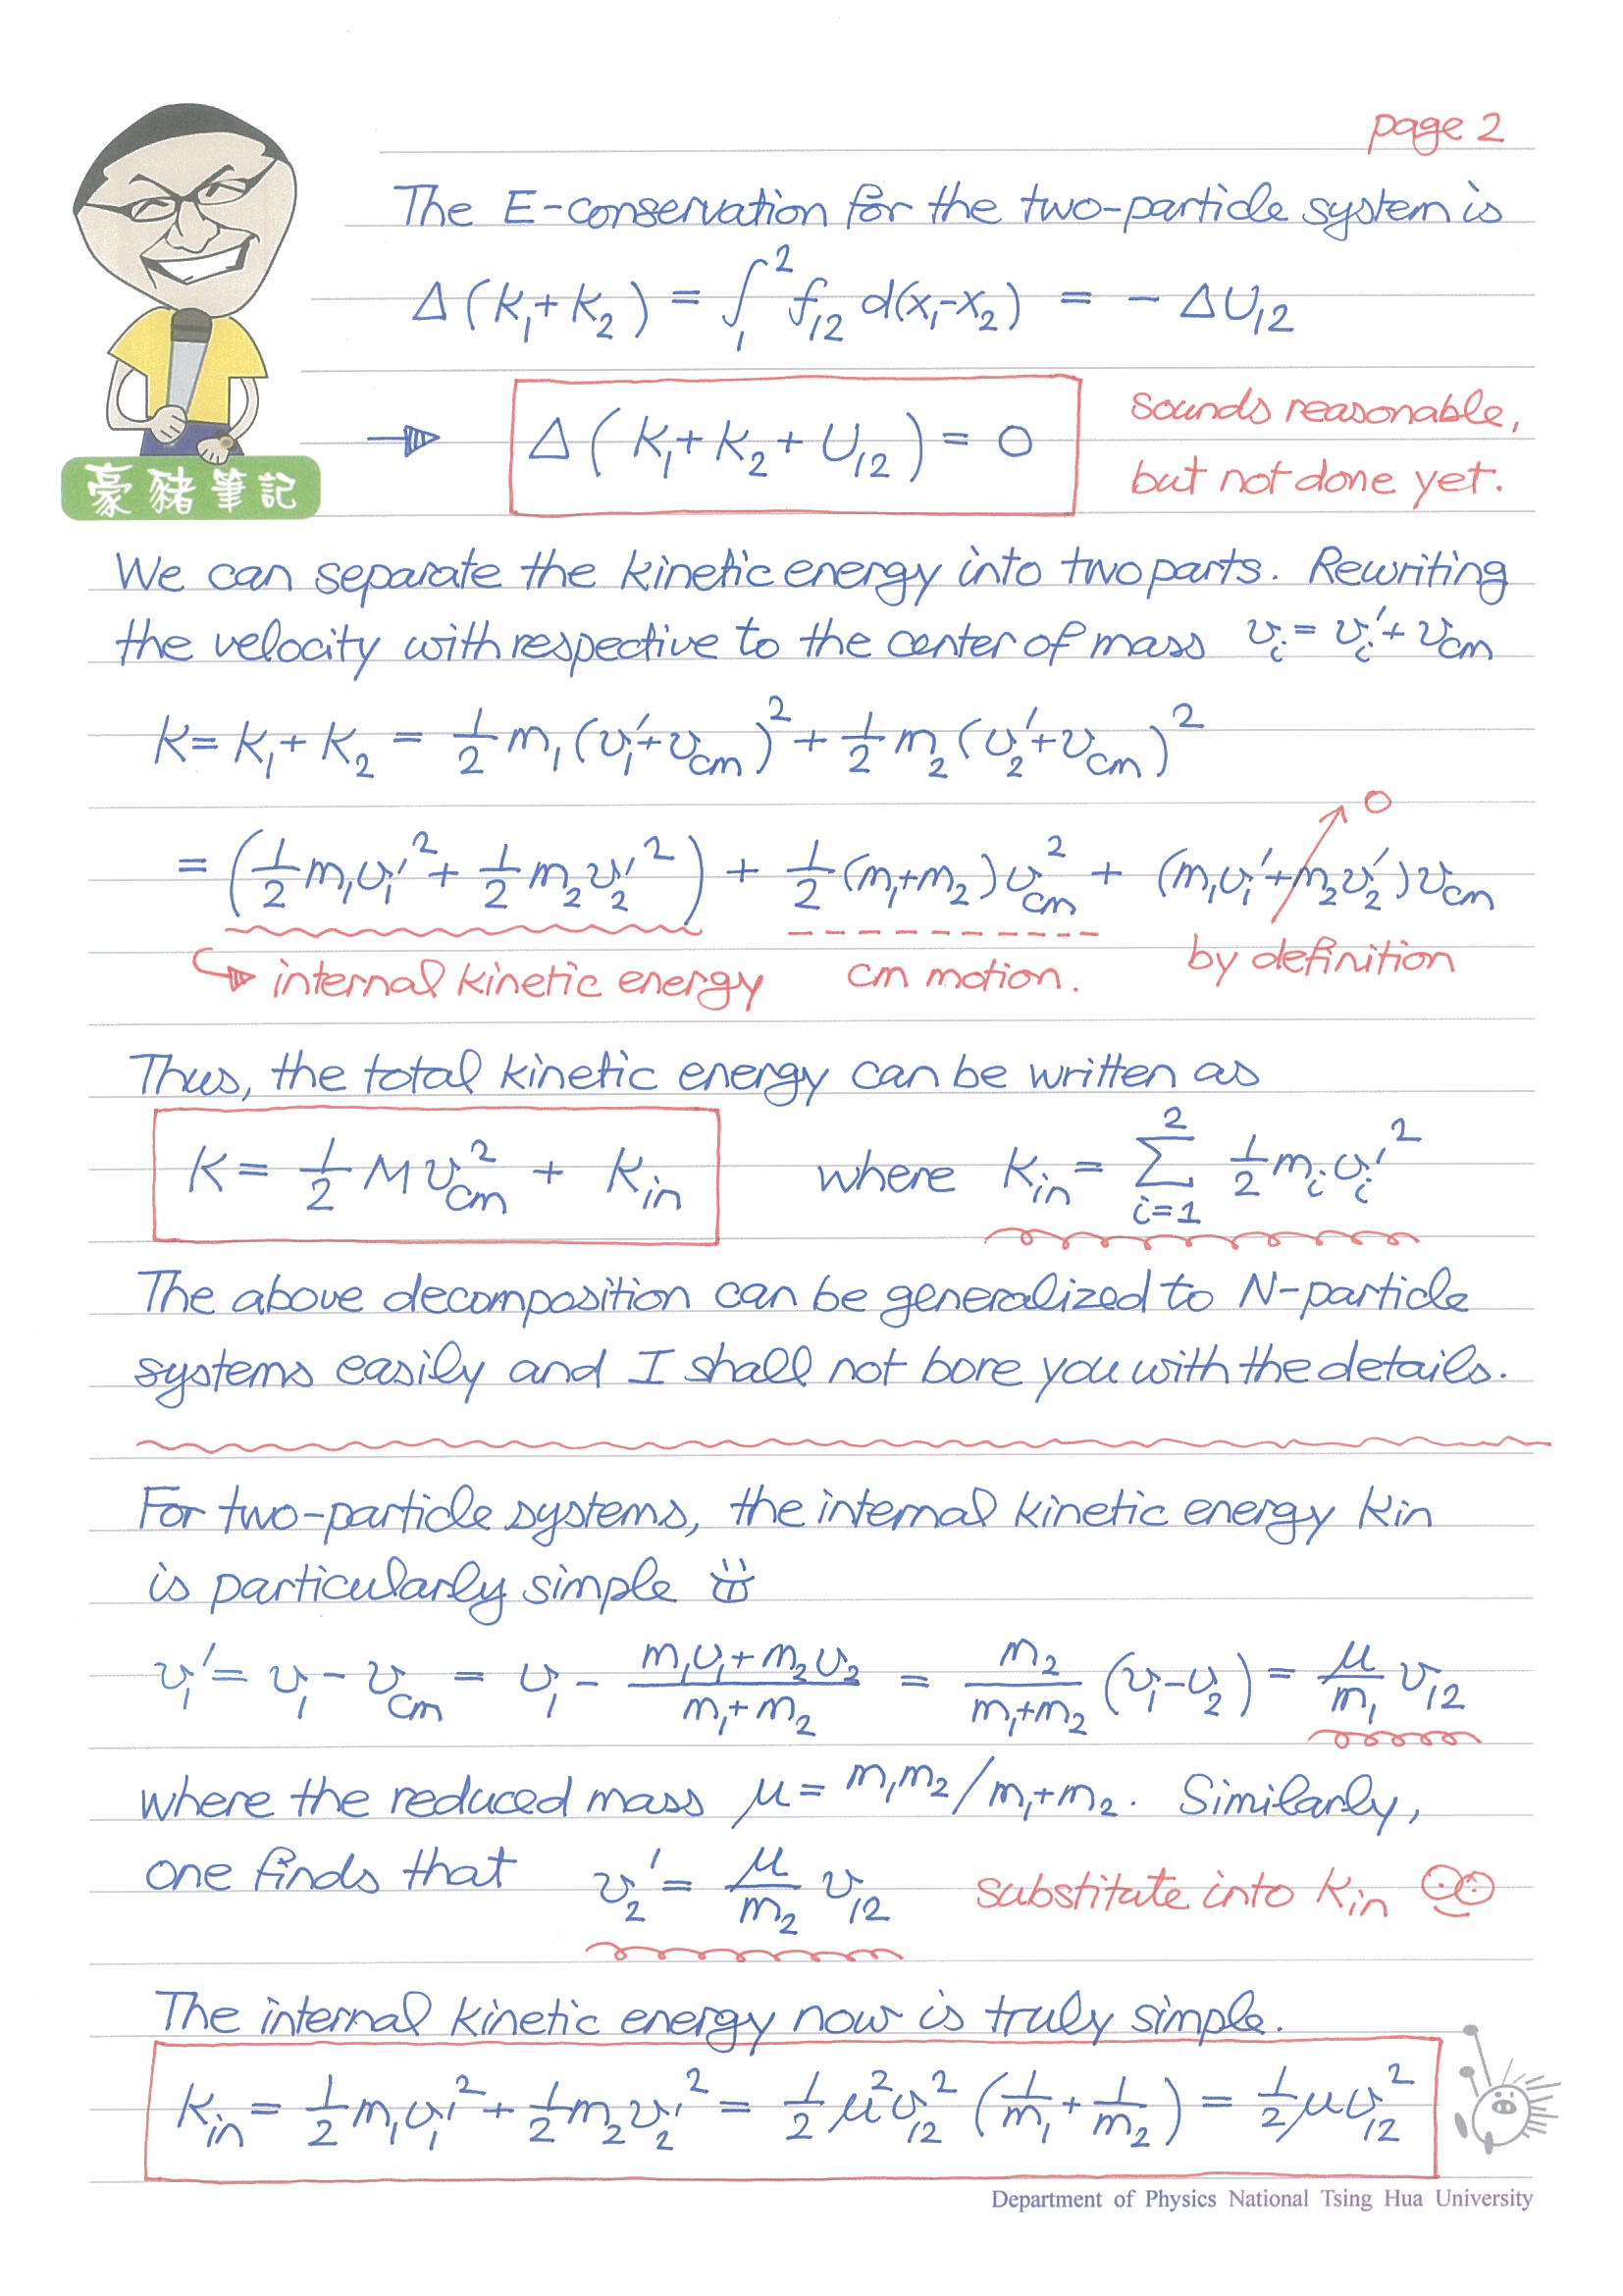 page 2
The E-conservation for the two-particle system is
Δ(K₁+K₂) = ∫₁² f₁₂ d(x₁-x₂) = -ΔU₁₂
→ Δ(K₁+K₂+U₁₂) = 0
sounds reasonable,
but not done yet.
豪豬筆記
We can separate the kinetic energy into two parts. Rewriting
the velocity with respective to the center of mass vᵢ = vᵢ' + v_cm
K = K₁+K₂ = 1/2 m₁(v₁'+v_cm)² + 1/2 m₂(v₂'+v_cm)²
= (1/2 m₁v₁'² + 1/2 m₂v₂'²) + 1/2 (m₁+m₂)v_cm² + (m₁v₁'+m₂v₂')v_cm → 0
internal kinetic energy cm motion. by definition
Thus, the total kinetic energy can be written as
K = 1/2 Mv_cm² + K_in where K_in = Σ_{i=1}^{2} 1/2 mᵢvᵢ'²
The above decomposition can be generalized to N-particle
systems easily and I shall not bore you with the details.
For two-particle systems, the internal kinetic energy Kin
is particularly simple
v₁' = v₁ - v_cm = v₁ - (m₁v₁+m₂v₂)/(m₁+m₂) = m₂/(m₁+m₂) (v₁-v₂) = μ/m₁ v₁₂
where the reduced mass μ = m₁m₂/m₁+m₂. Similarly,
one finds that v₂' = μ/m₂ v₁₂ substitute into K_in
The internal kinetic energy now is truly simple.
K_in = 1/2 m₁v₁'² + 1/2 m₂v₂'² = 1/2 μ²v₁₂² (1/m₁ + 1/m₂) = 1/2 μv₁₂²
Department of Physics National Tsing Hua University